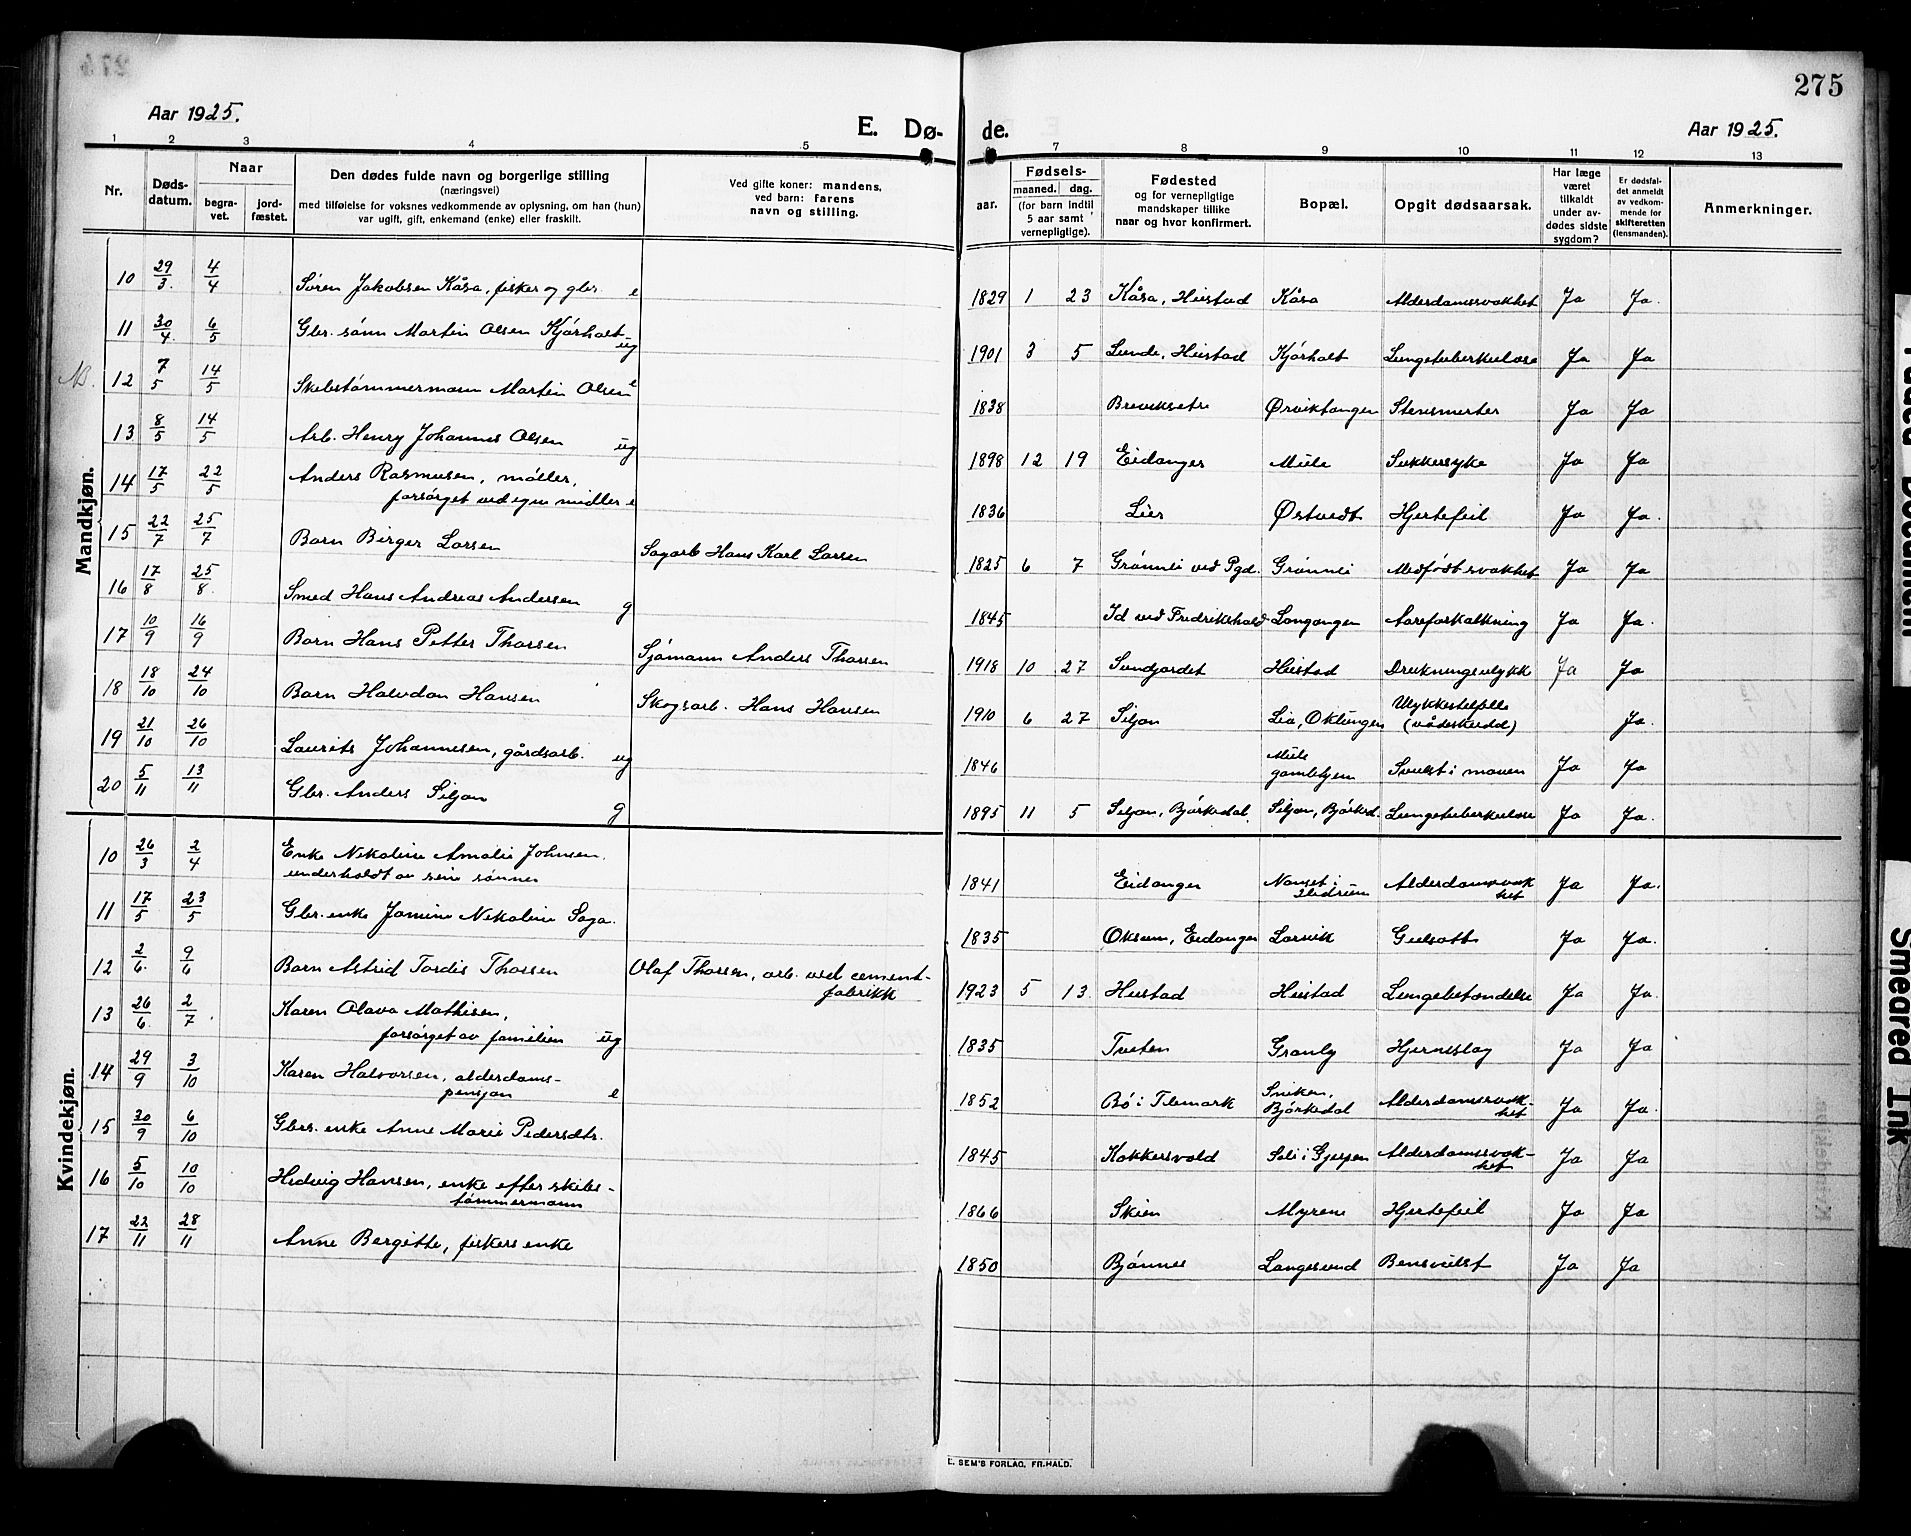 275
Aar 1925.
E. Dø- de.
Aar 1925.
1 2 3 4 5 6 7 8 9 10 11 12 13
Nr.
Døds-
datum.
Naar
begra-
vet.
jord-
fæstet.
Den dødes fulde navn og borgerlige stilling
(næringsvei)
med tilføielse for voksnes vedkommende av oplysning, om han (hun)
var ugift, gift, enkemand (enke) eller fraskilt.
Ved gifte koner: mandens,
ved barn: farens
navn og stilling.
Fødsels-
aar.
maaned.
dag.
(for barn indtil
5 aar samt
vernepligtige).
Fødested
og for vernepligtige
mandskaper tillike
naar og hvor konfirmert.
Bopæl.
Opgit dødsaarsak.
Har læge
været
tilkaldt
under av-
dødes sidste
sygdom?
Er dødsfal-
det anmeldt
av vedkom-
mende for
skifteretten
(lensmanden).
Anmerkninger.
Mandkjøn.
10 29/3. 4/4 Søren Jakobsen Kåsa, fisker og gbr. e 1829 1 23 Kåsa, Heistad Kåsa Alderdomssvakhet Ja Ja.
11 30/4. 6/5 Gbr. sønn Martin Olsen Kjørholt ug 1901 3 5 Lunde, Heistad Kjørholt Lungetuberkulose Ja Ja
NB. 12 7/5 14/5 Skibstømmermann Martin Olsen e 1838 Breviksstr. Ørviktangen Stensmerter Ja Ja
13 8/5 14/5 Arb. Henry Johannes Olsen ug 1898 12 19 Eidanger Mule Sukkersyke Ja Ja
14 17/5 22/5 Anders Rasmusen, møller,
forsørget ved egne midler e 1836 Lier Østvedt Hjertefeil Ja Ja.
15 22/7 25/7 Barn Birger Larsen Sagarb Hans Karl Larsen 1825 6 7 Grønnli ved Pgd. Grønnli Medfødt svakhet Ja Ja
16 17/8 25/8. Smed Hans Andreas Andersen g 1845 Id ved Fredrikshald Langangen Aareforkalkning Ja Ja.
17 10/9 16/9 Barn Hans Petter Thorsen Sjømann Anders Thorsen 1918 10 27 Sundjordet Heistad Drukningsulykk Ja Ja
18 18/10 24/10 Barn Halvdan Hansen Skogsarb. Hans Hansen 1910 6 27 Siljan Lia, Oklungen Ulykkestilfelle
(vådeskudd) Ja.
19 21/10 26/10 Laurits Johannesen, gårdsarb. ug 1846 Mule
gamlehjem Svulst i maven Ja Ja
20 5/11 13/11 Gbr. Anders Siljan g 1895 11 5 Siljan, Bjørkedal Siljan, Bjørked. Lungetuberkulose Ja Ja.
Kvindekjøn.
10 26/3 2/4 Enke Nikoline Amalie Johnsen,
underholdt av sine sønner 1841 Eidanger Nanset i
Hedrum Alderdomssvak
het Ja Ja.
11 17/5 23/5 Gbr. enke Jamine Nikoline Saga. 1835 Oksum, Eidanger Larvik Gulsott Ja Ja.
12 2/6. 9/6 Barn Astrid Tordis Thorsen Olaf Thorsen, arb. ved cement-
fabrikk 1923 5 13 Heistad Heistad Lungebetendelse Ja Ja.
13 26/6. 2/7 Karen Olava Mathisen,
forsørget av familien ug 1835 Tveten Granly Hjerneslag Ja Ja
14 29/9 3/10 Karen Halvorsen, alderdoms-
pensjon e 1852 Bø i Telemark Sniken,
Bjørkedal Alderdomssvak-
het Ja Ja.
15 30/9 6/10 Gbrs. enke Anne Marie Pedersdtr. 1845 Kokkersvold Soli i Gjerpen Alderdomssvak-
het Ja Ja
16 5/10 10/10 Hedvig Hansen, enke efter skibs-
tømmermann 1866 Skien Myrene Hjertefeil Ja Ja
17 22/11 28/11 Anne Bergitte, fiskers enke 1850 Bjønnes Langesund Bensvulst Ja Ja
E. SEM'S FORLAG, FR.HALD.
Faded Document
Smeared Ink